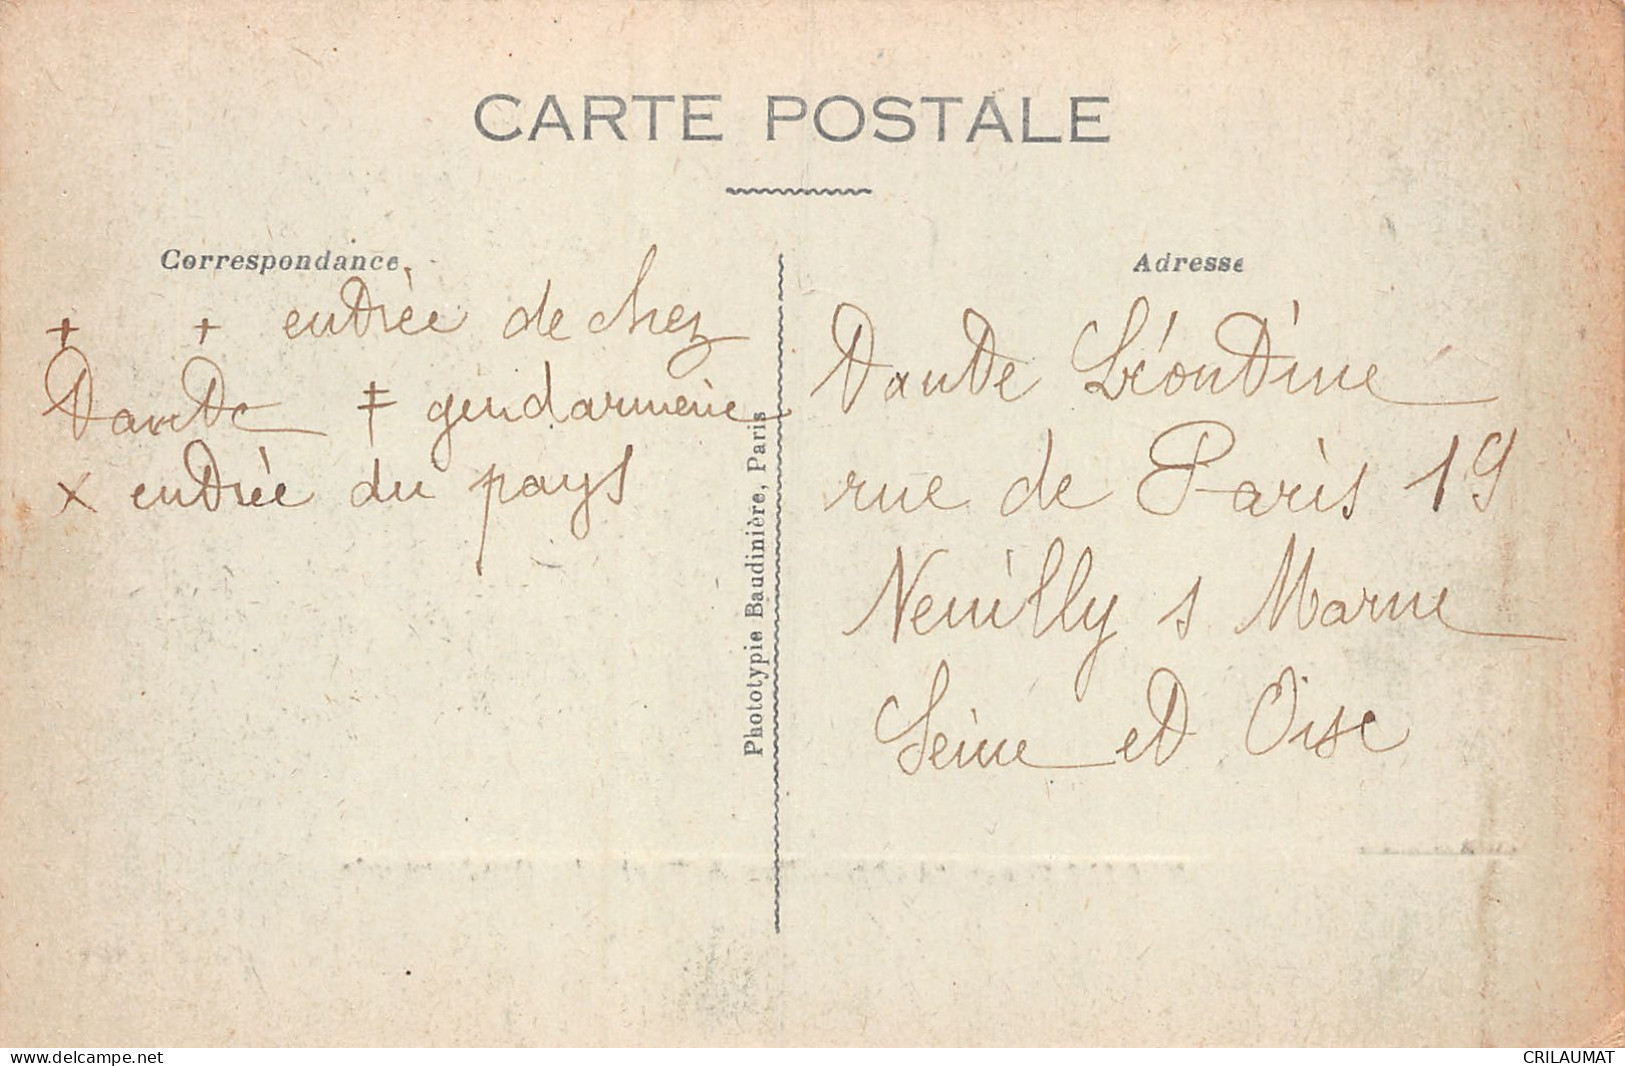 CARTE POSTALE
Correspondance
+ + entrèe de chez
Daude ‡ gendarmerie
x entrèe du pays
Photo­typie Baudinière, Paris
Adresse
Daude Léontine
rue de Paris 19
Neuilly s Marne
Seine et Oise
www.delcampe.net
CRILAUMAT